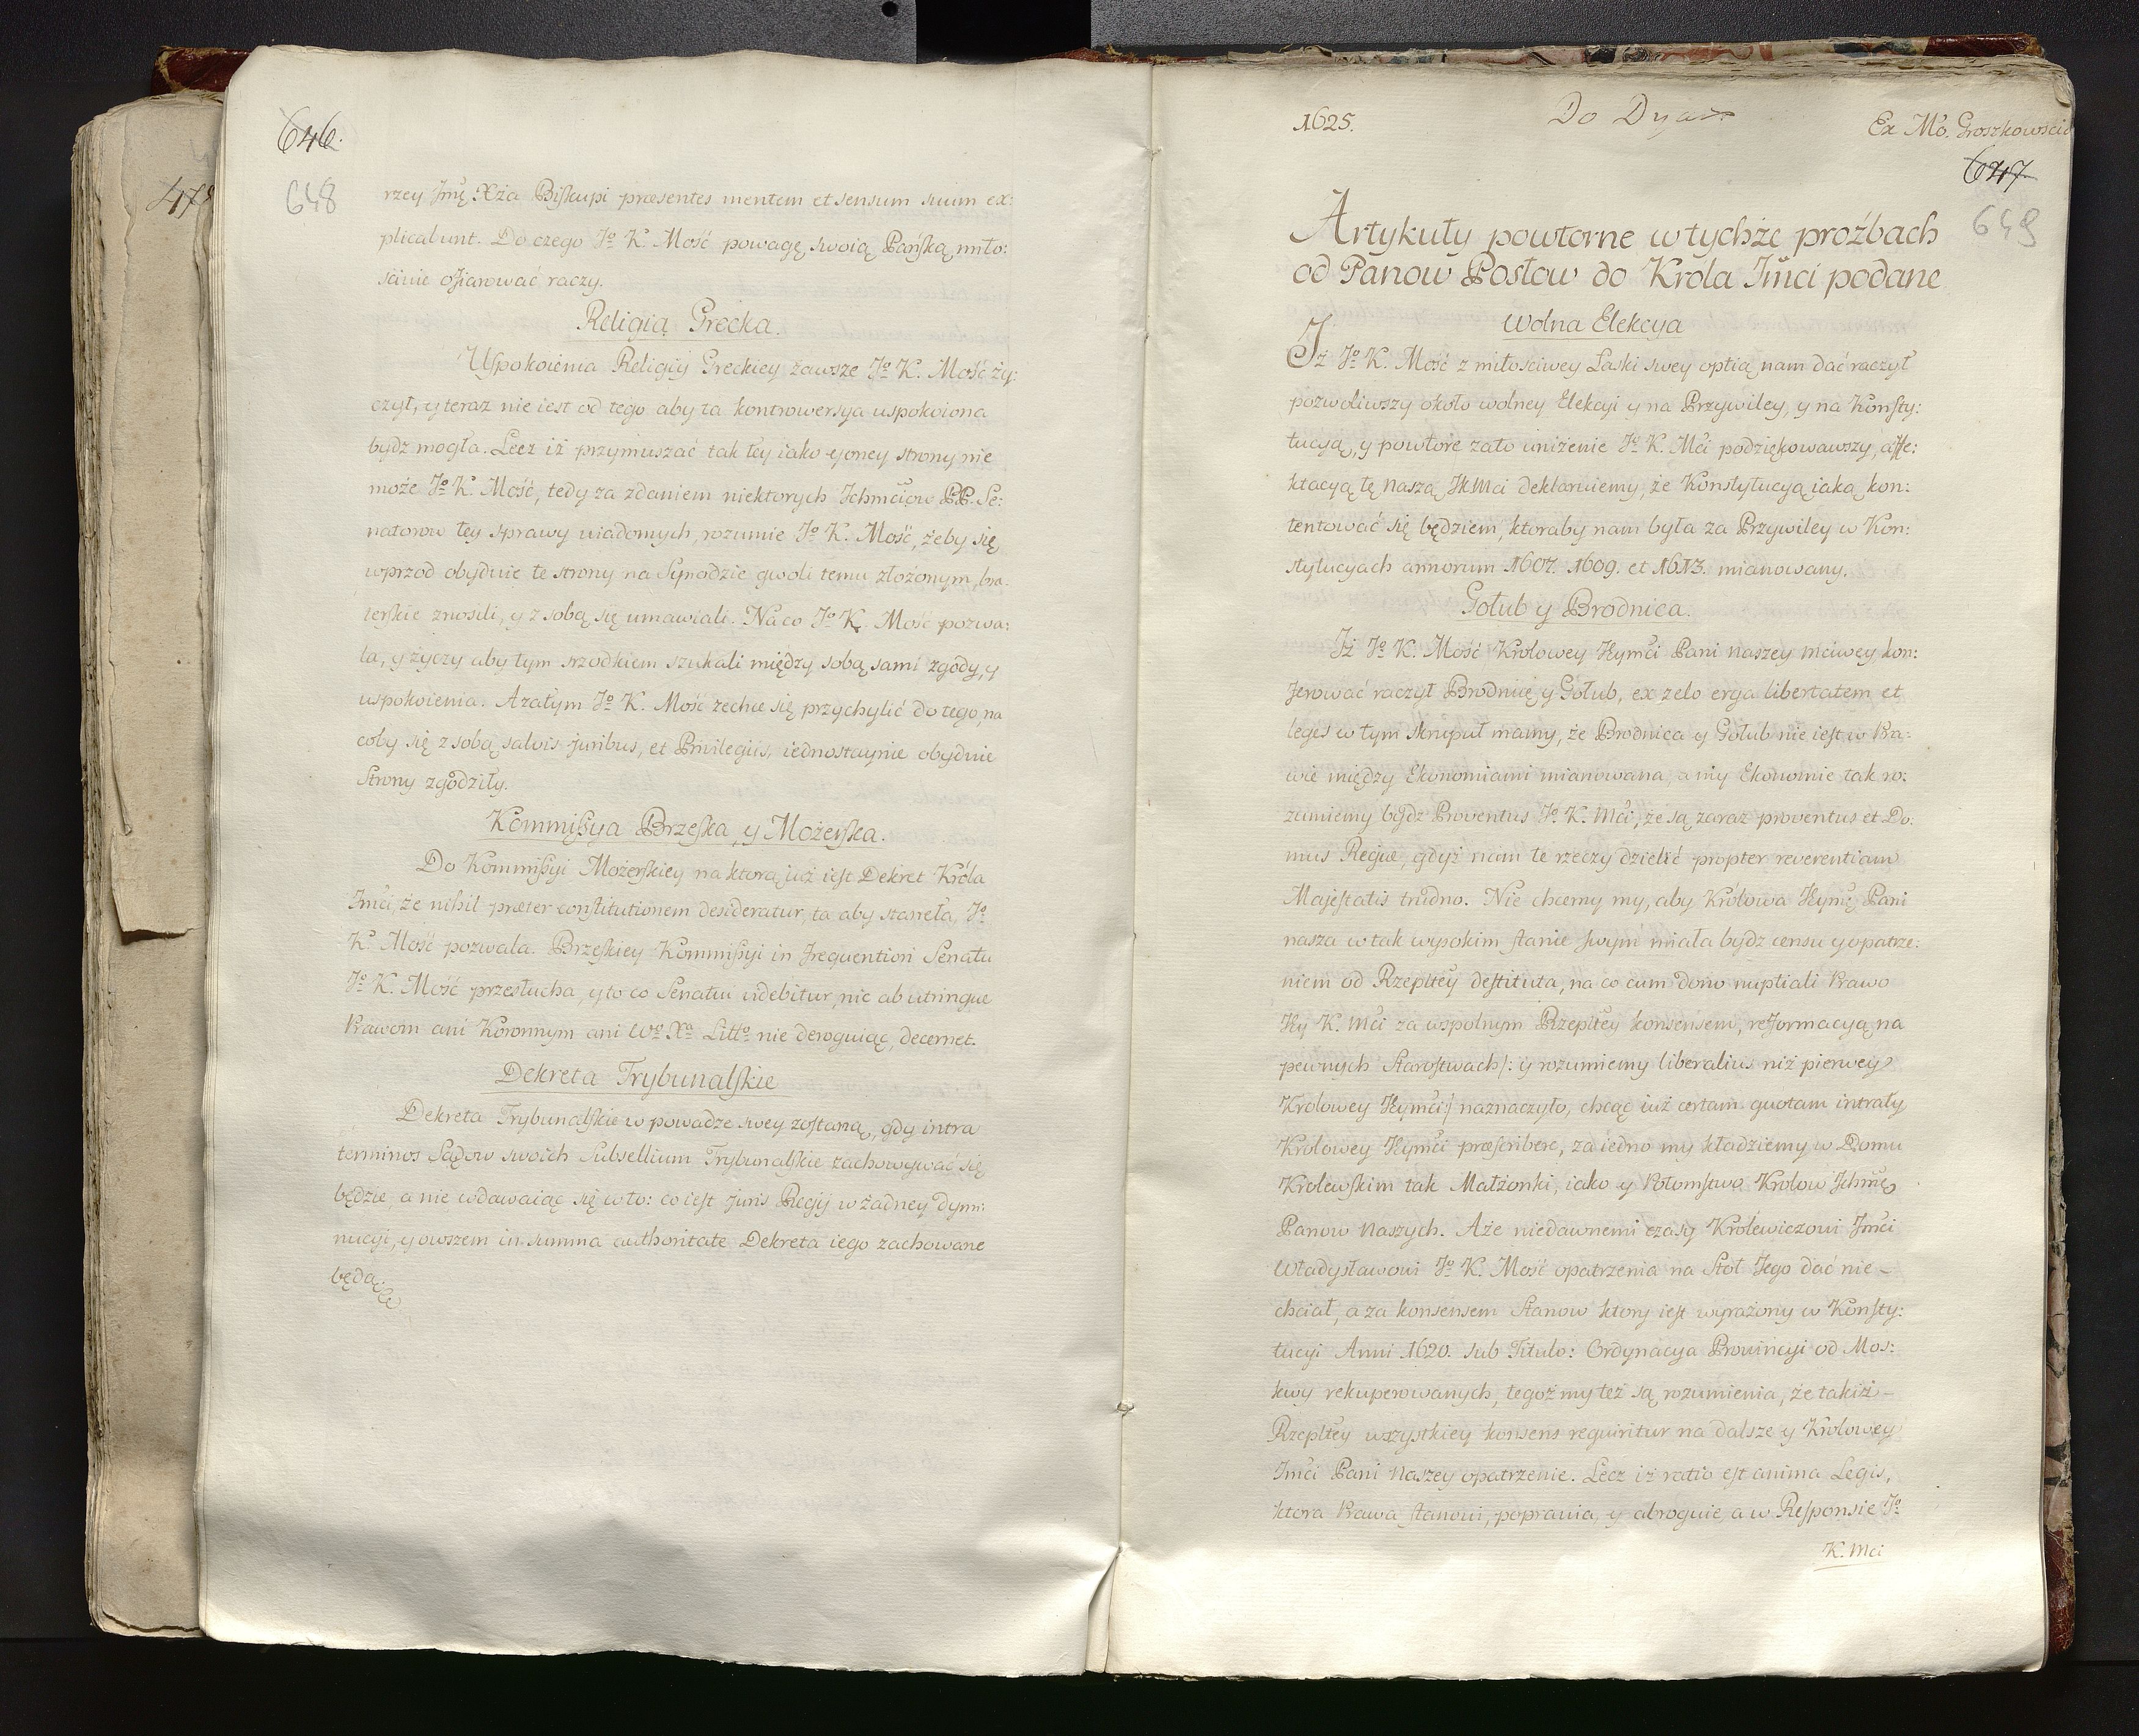 646.
648
rzey Jmę Xża Biskupi præsentes mentem et sensum suum ex:
plicabunt. Do czego Jº K. Mość powagę swoią Pańską miło:
sciwie ofiarować raczy.
Religia Grecka.
Uspokoienia Religiy Greckiey zawsze Jº K. Mość ży:
czył, y teraz nie iest od tego aby ta kontrowersya uspokoiona
bydz mogła. Lecz iż przymuszać tak tey iako y oney strony nie
może Jº K. Mość, tedy za zdaniem niektorych Jchmciow PP. Se:
natorow tey sprawy wiadomych, rozumie Jº K. Mość, żeby się
wprzod obydwie te strony na Synodzie gwoli temu złożonym, bra:
terskie znosili, y z sobą się umawiali. Na co Jº K. Mość pozwa:
la, y życzy aby tym srzodkiem szukali między sobą sami zgody, y
uspokoienia. A zatym Jº K. Mość zechce się przychylić do tego, na
coby się z sobą salvis juribus, et Privilegiis, iednostaynie obydwie
Strony zgodziły.
Kommissya Brzeska, y Możerska.
Do Kommissyi Możerskiey na ktorą już iest Dekret Króla
Jmći, że nihil præter constitutionem desideratur, ta aby staneła, Jº
K. Mość pozwala. Brzeskiey Kommissyi in frequentiori Senatu
Jº K. Mość przesłucha, y to co Senatui videbitur, nic ab utrinque
Prawom ani Koronnym ani Wº Xª Littº nie deroguiąc, decernet.
Dekreta Trybunalskie
Dekreta Trybunalskie w powadze swey zostaną, gdy intra
terminos Sądow swoich Subsellium Trybunalskie zachowywać się
będzie, a nie wdawaiąc się w to: co iest juris Regij w żadney dymi:
nucyi, y owszem in summa authoritate Dekreta iego zachowane
będą.
1625.
Do Dyar
Ex Mo. Groszkowscia
647
649
Artykuły powtorne w tychże proźbach
od Panow Posłow do Krola Jmći podane
Wolna Elekcya
Iż Jº K. Mość z miłościwey Łaski swey optią nam dać raczył
pozwoliwszy około wolney Elekcyi y na Przywiley, y na Konsty:
tucyą, y powtore zato uniżenie Jº K. Mći podziękowawszy, affe:
ktacyą tę naszą JKMci deklaruiemy, że Konstytucyą iaką kon:
tentować się będziem, ktoraby nam była za Przywiley w Kon:
stytucyach annorum 1607. 1609. et 1613. mianowany.
Gołub y Brodnica.
Iż Jº K. Mość Krolowey Jeymći Pani naszey mciwey kon:
ferować raczył Brodnicę y Gołub, ex zelo erga libertatem et
leges w tym skrupuł mamy, że Brodnica y Gołub nie iest w Pra:
wie między Ekonomiami mianowana, a my Ekonomie tak ro:
zumiemy bydz Proventus Jº K. Mći, że są zaraz proventus et Do:
mus Regiæ, gdyż nam te rzeczy dzielić propter reverentiam
Majestatis trudno. Nie chcemy my, aby Królowa Jeymę Pani
nasza w tak wysokim stanie swym miała bydz censu y opatrze:
niem od Rzepltey destituta, na co cum dono nuptiali Prawo
Jey K. Mći za wspolnym Rzepltey konsensem, reformacyą na
pewnych Starostwach /: y rozumiemy liberalius niż pierwey
Krolowey Jeymći :/ naznaczyło, chcąc już certam quotam intraty
Krolowey Jeymći præscribere, za iedno my kładziemy w Domu
Krolewskim tak Małżonki, iako y Potomstwo Krolow Jchmę
Panow naszych. A że niedawnemi czasy Królewiczowi Jmći
Władysławowi Jº K. Mość opatrzenia na Stoł Jego dać nie -
chciał, a za konsensem Stanow ktory iest wyrażony w Konsty:
tucyi Anni 1620. sub Titulo: Ordynacya Prowincyi od Mos:
kwy rekuperowanych, tegoż my też są rozumienia, że takiż -
Rzepltey wszystkiey konsens requiritur na dalsze y Krolowey
Jmći Pani naszey opatrzenie. Lecz iż ratio est anima Legis,
ktora Prawa stanowi, poprawia, y abroguie, a w Responsie Jº
K. Mci